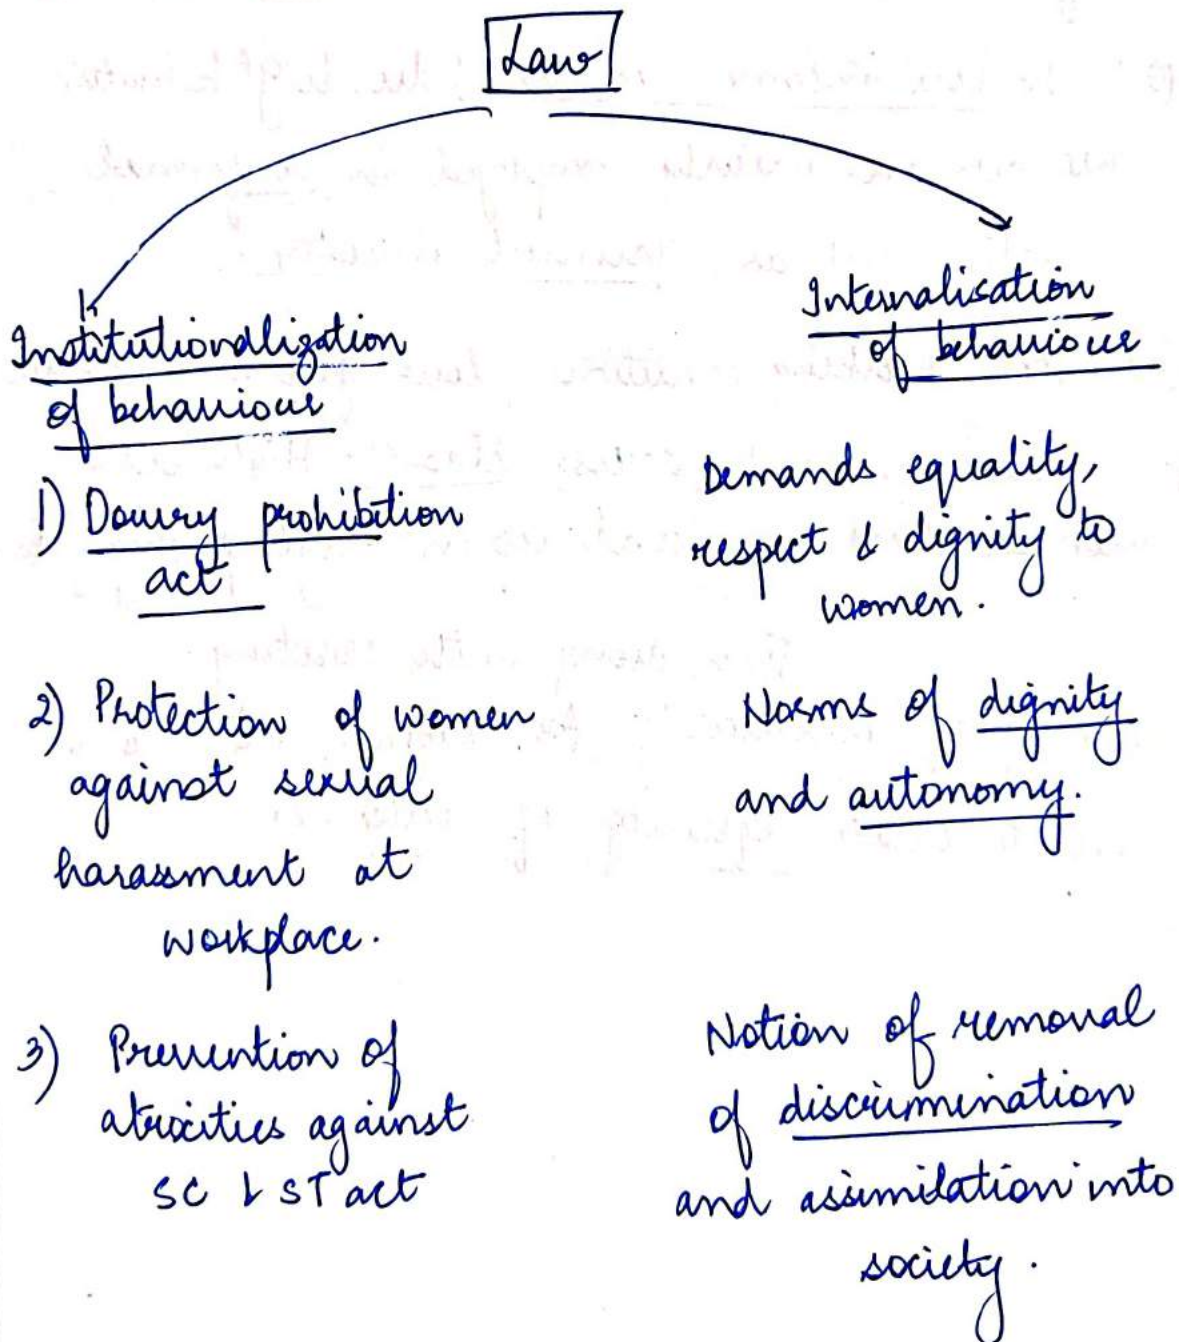 Law
Institutionalization
of behaviour
1) Dowry prohibition
act
2) Protection of women
against sexual
harassment at
workplace.
3) Prevention of
atrocities against
SC & ST act
Internalisation
of behaviour
Demands equality,
respect & dignity to
women.
Norms of dignity
and autonomy.
Notion of removal
of discrimination
and assimilation into
society.